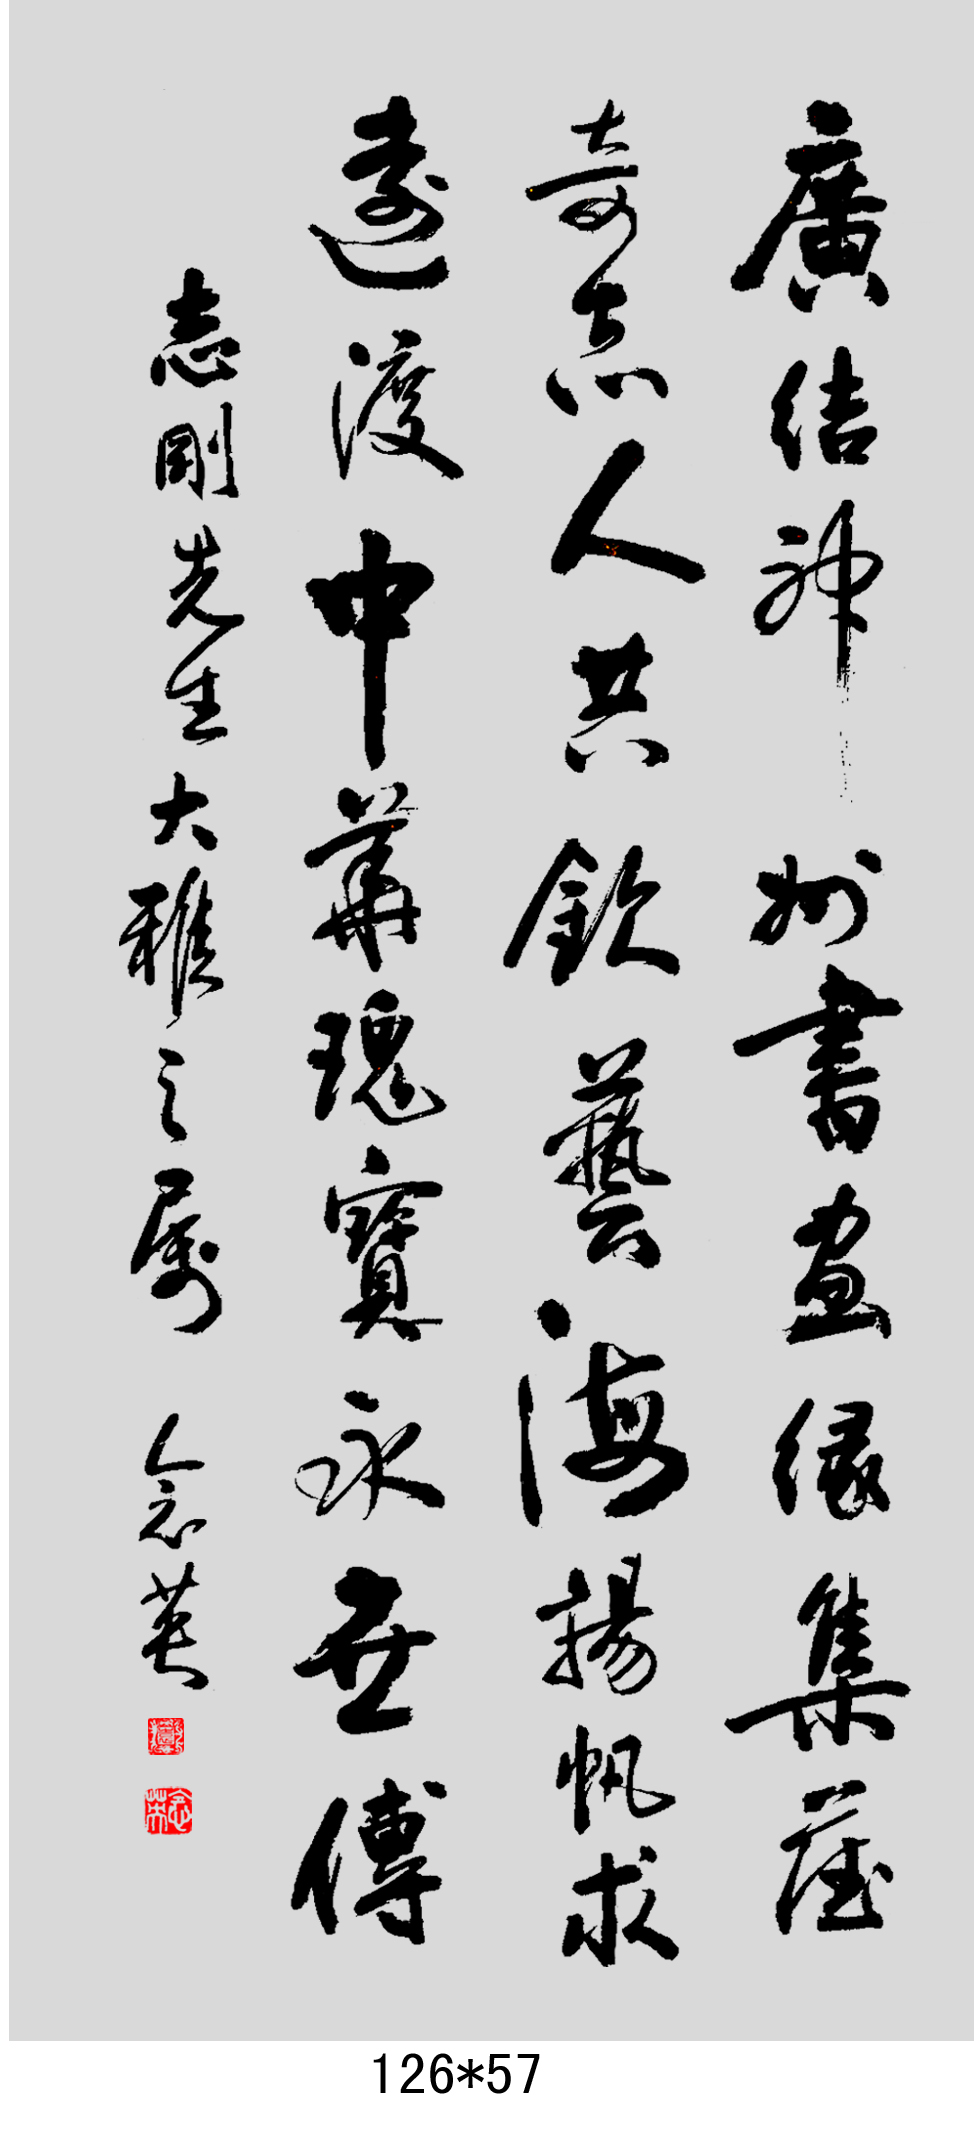 廣結神州書畫緣集藏
奇志人共欽藝海揚帆求
遠渡中華瑰寶永世傳
志剛先生大雅之属 念英
126*57